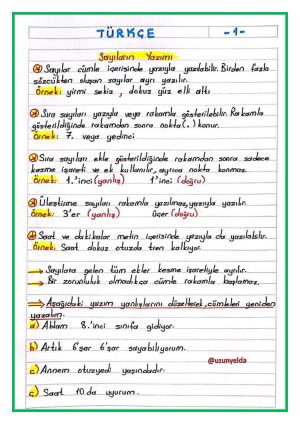 TÜRKÇE -1-
Sayıların Yazımı
Sayılar cümle içerisinde yazıyla yazılabilir. Birden fazla
sözcükten oluşan sayılar ayrı yazılır.
Örnek: yirmi sekiz , dokuz yüz elli altı
Sıra sayıları yazıyla veya rakamla gösterilebilir. Rakamla
gösterildiğinde rakamdan sonra nokta(.) konur.
Örnek: 7. veya yedinci
Sıra sayıları ekle gösterildiğinde rakamdan sonra sadece
kesme işareti ve ek kullanılır, ayrıca nokta konmaz.
Örnek: 1.'inci (yanlış) 1'inci (doğru)
Üleştirme sayıları rakamla yazılmaz, yazıyla yazılır.
Örnek: 3'er (yanlış) üçer (doğru)
Saat ve dakikalar metin içerisinde yazıyla da yazılabilir.
Örnek: Saat dokuz otuzda tren kalkıyor.
→ Sayılara gelen tüm ekler kesme işaretiyle ayrılır.
→ Bir zorunluluk olmadıkça cümle rakamla başlamaz.
→ Aşağıdaki yazım yanlışlarını düzelterek, cümleleri yeniden
yazalım.
a) Ablam 8.'inci sınıfa gidiyor.
b) Artık 6'şar 6'şar sayabiliyorum.
@uzunyelda
c) Annem otuzyedi yaşındadır.
ç) Saat 10.da uyurum.